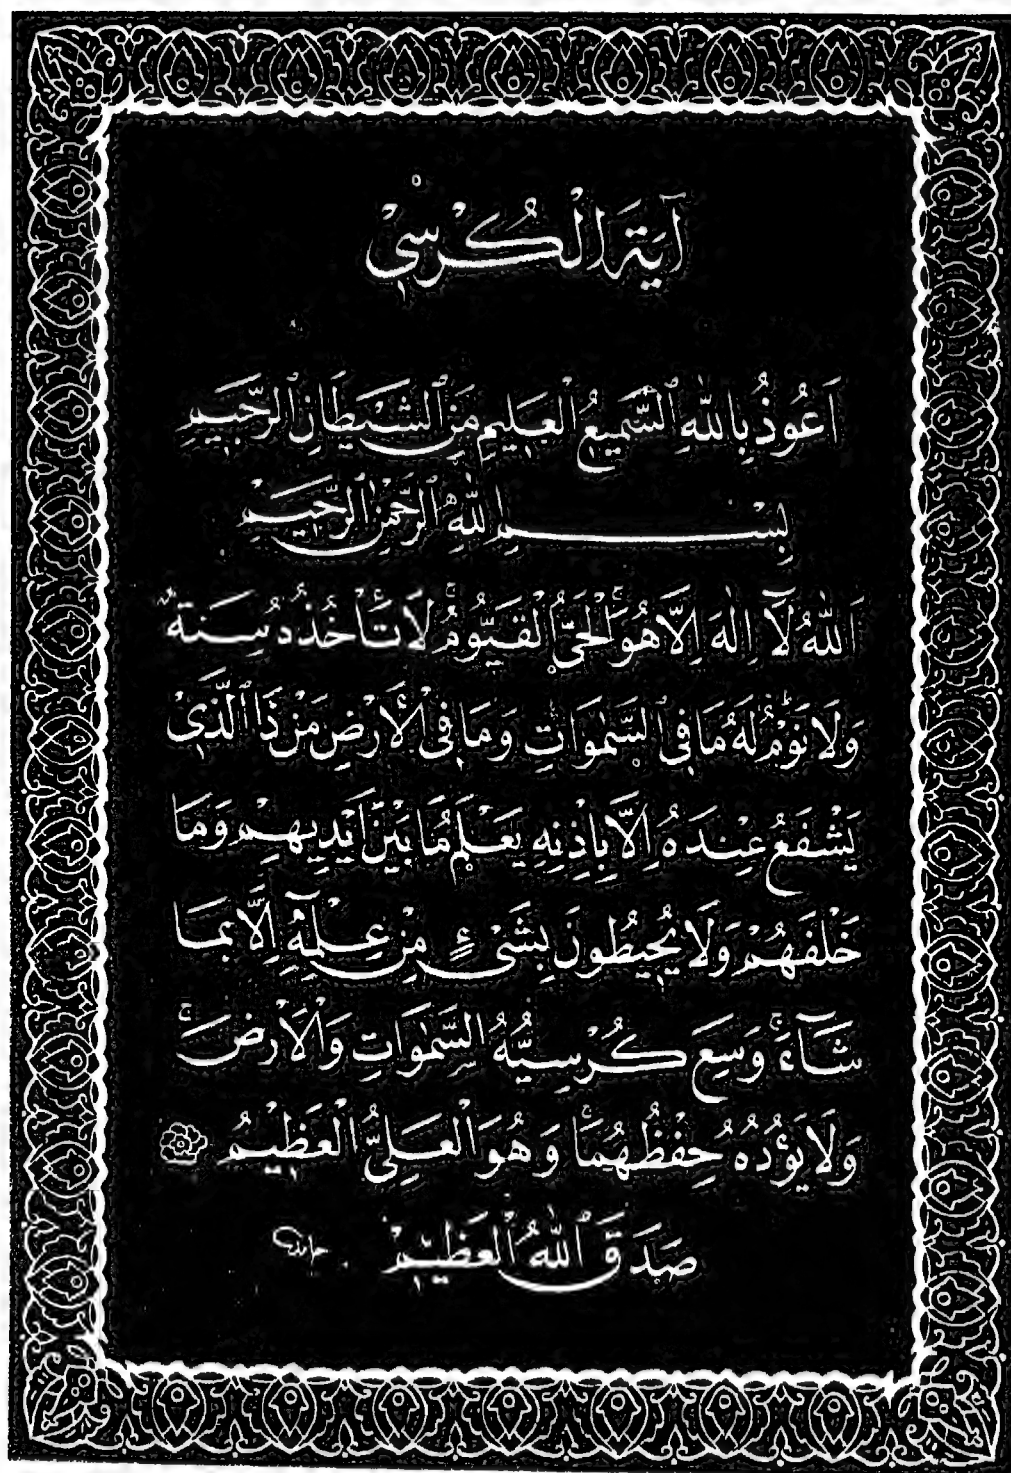 آيَةَ الْكُرْسِيْ
اَعُوذُ بِاللّٰهِ السَّمِيعُ الْعَلِيمِ مِنَ الشَّيْطَانِ الرَّجِيمِ
بِسْــــــمِ اللّٰهِ الرَّحْمٰنِ الرَّحِيمْ
اَللّٰهُ لَآ اِلٰهَ اِلَّا هُوَۚ اَلْحَىُّ الْقَيُّومُۚ لَا تَأْخُذُهُ سِنَةٌ
وَلَا نَوْمٌۜ لَهُ مَا فِى السَّمٰوَاتِ وَمَا فِى الْاَرْضِ مَنْ ذَا الَّذِىْ
يَشْفَعُ عِنْدَهُ اِلَّا بِاِذْنِهِ يَعْلَمُ مَا بَيْنَ اَيْدِيهِمْ وَمَا
خَلْفَهُمْ وَلَا يُحِيطُونَ بِشَىْءٍ مِنْ عِلْمِهٓ اِلَّا بِمَا
شَآءَۚ وَسِعَ كُرْسِيُّهُ السَّمٰوَاتِ وَالْاَرْضَۚ
وَلَا يَؤُدُهُ حِفْظُهُمَاۚ وَهُوَ الْعَلِىُّ الْعَظِيْمُ
صَدَقَ اللّٰهُ الْعَظِيْمْ